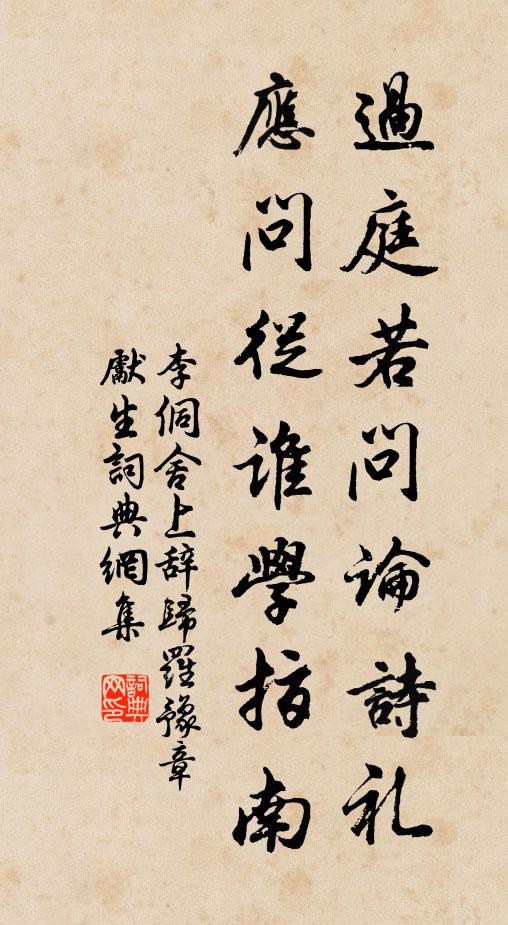 過庭若問論詩礼
應問從誰學指南
李侗舍上辞歸羅豫章
獻生詞典網集
詞典
网印